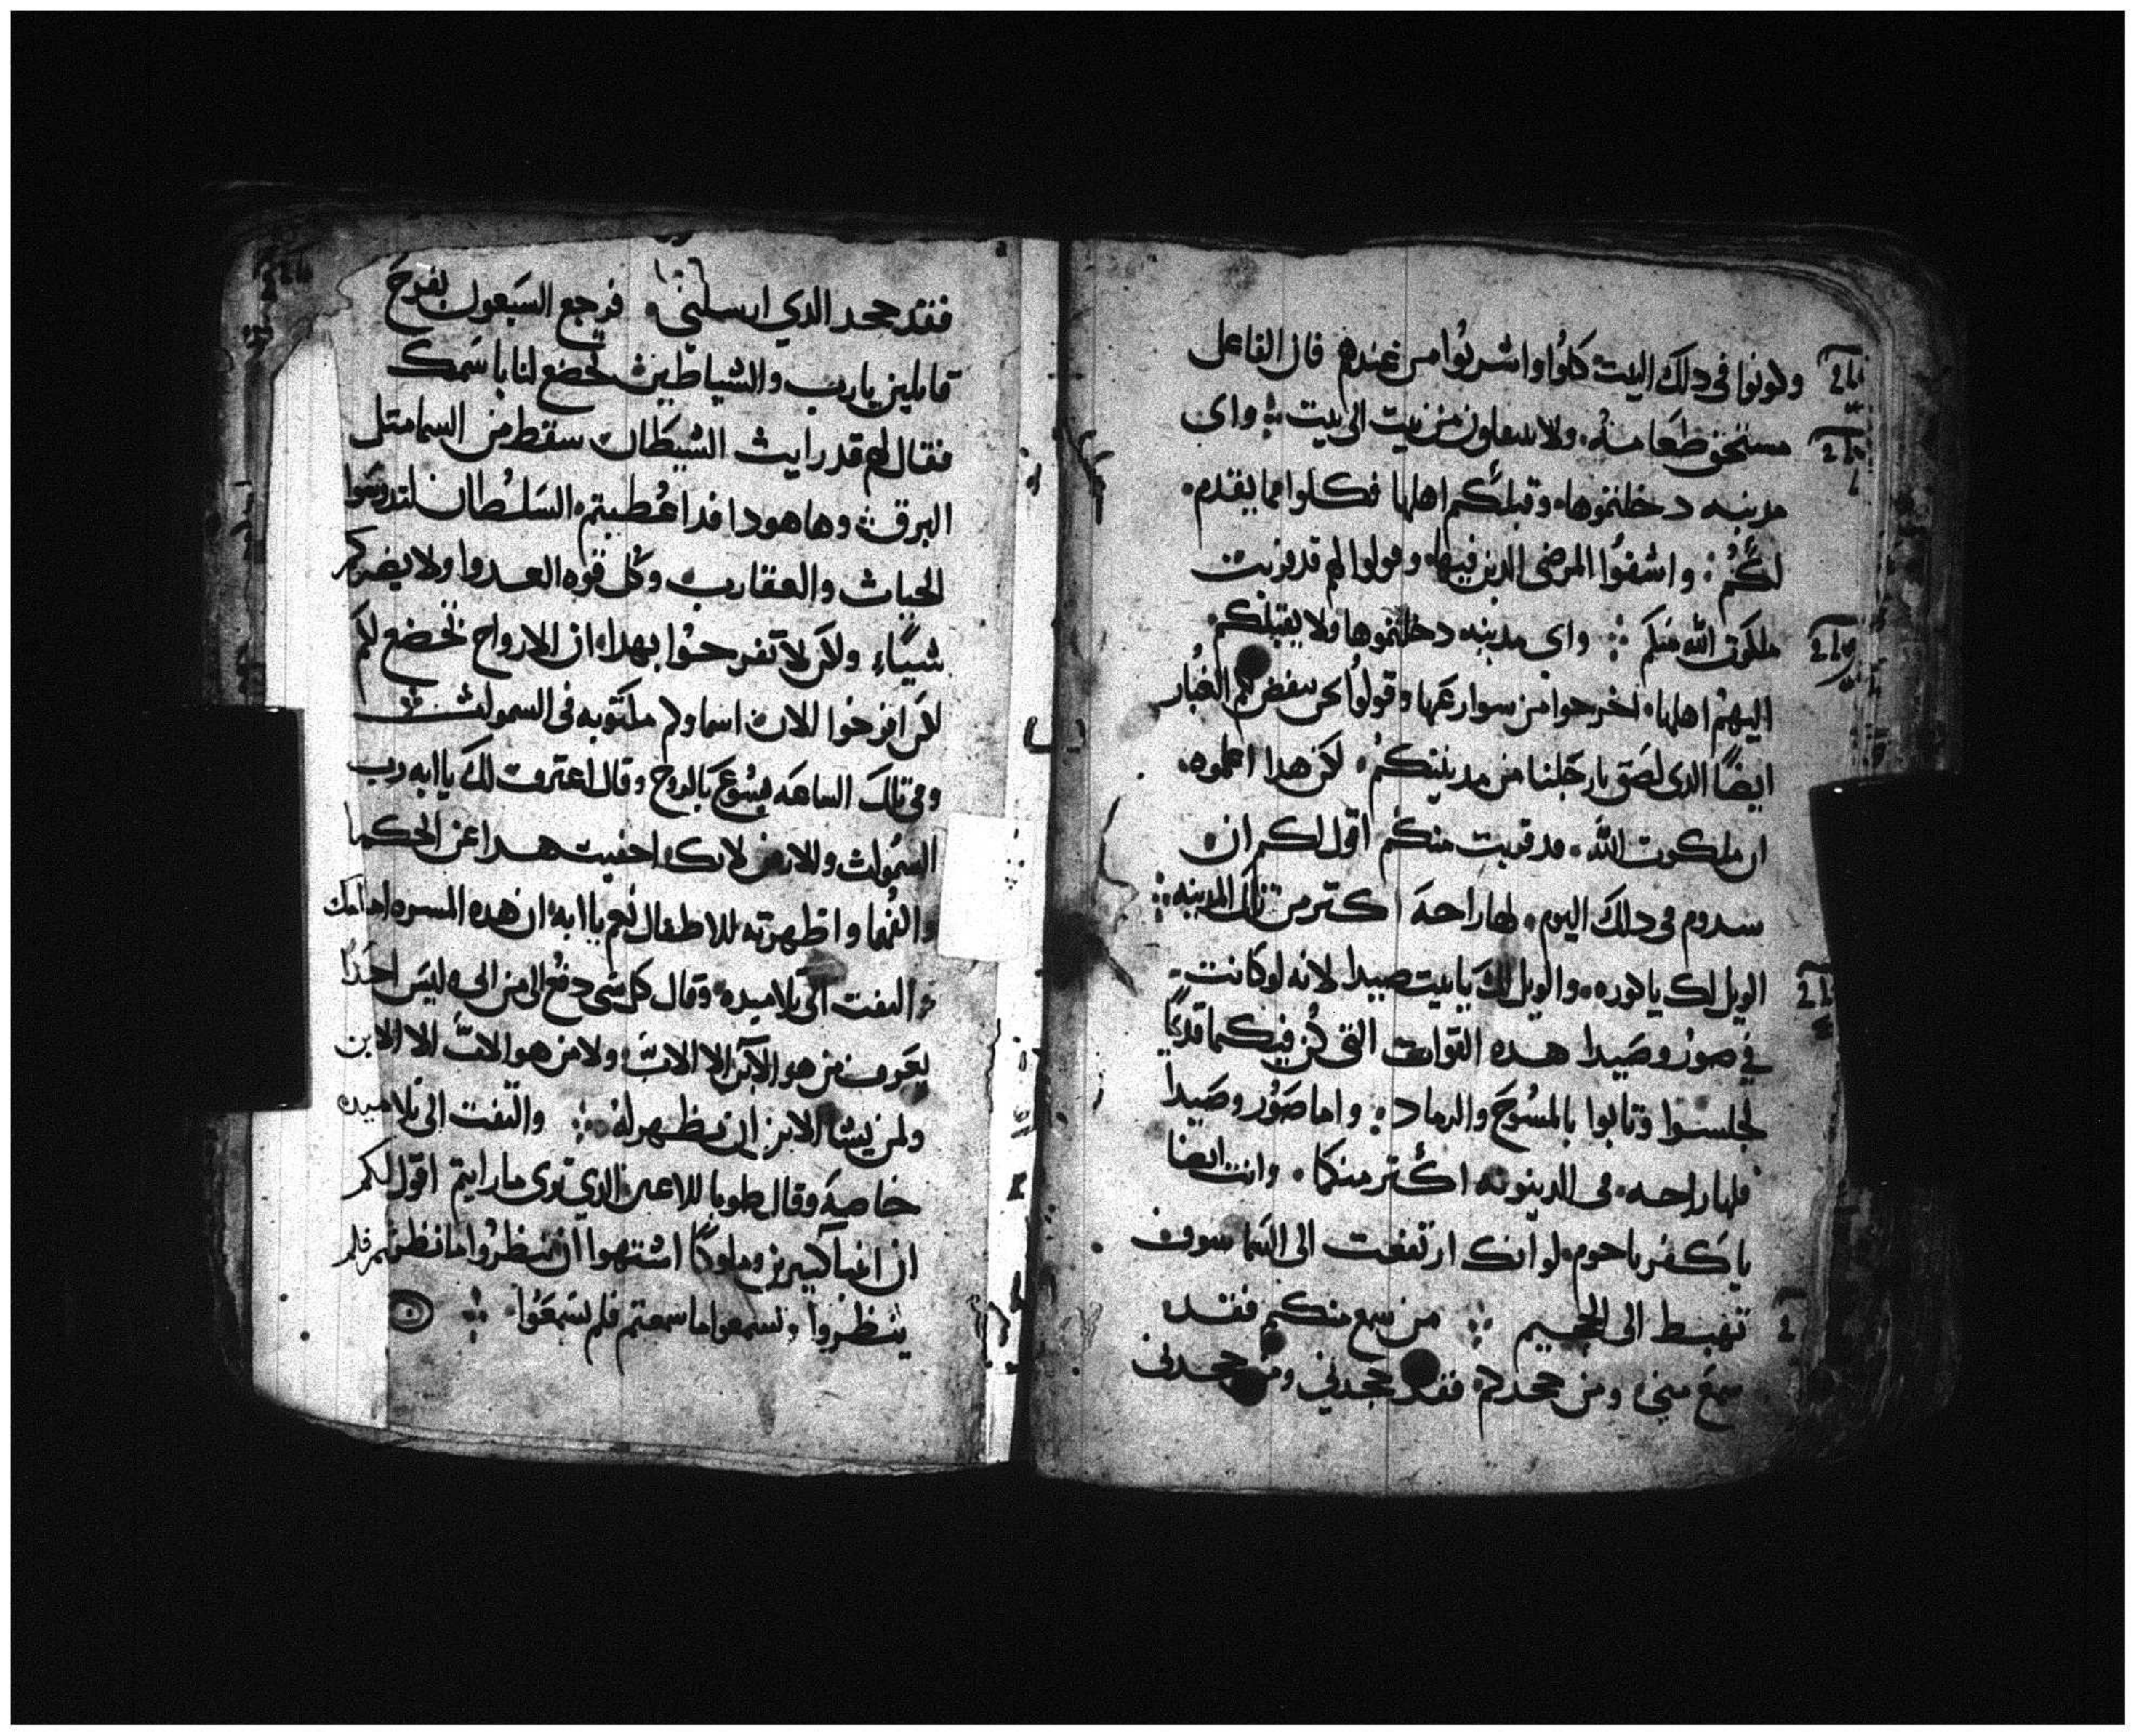 وكونوا في دلك البيت كلوا واشربوا من عندهم فان الفاعل
مستحق طعامه ولا تنتقلون من بيت الى بيت واي
مدينه دخلتموها وقبلكم اهلها فكلوا مما يقدم
لكم واشفوا المرضى الدين فيها وقولوا لهم قد قربت
ملكوت الله منكم واي مدينه دخلتموها ولا يقبلكم
اليهم اهلها اخرجوا من سوارعها وقولوا نحن ننفض لكم الغبار
ايضا الدي لصق بارجلنا من مدينتكم لكن هدا اعلموه
ان ملكوت الله قد قربت منكم اقول لكم ان
سدوم في دلك اليوم لها راحه اكتر من تلك المدينه
الويل لك يا كوره والويل لك يا بيت صيدا لانه لو كانت
في صور وصيدا هده القوات التي كن فيكما قديما
لجلسوا وتابوا بالمسوح والرماد واما صور وصيدا
فلها راحه في الدينونه اكتر منكما وانت ايضا
يا كفرناحوم لو انك ارتفعت الى السما سوف
تهبط الى الجحيم من سمع منكم فقد
سمع مني ومن جحدكم فقد جحدني ومن جحدني
فقد جحد الدي ارسلني فرجع السبعون بفرح
قايلين يارب والشياطين تخضع لنا باسمك
فقال لهم قد رايت الشيطان سقط من السما متل
البرق وها هودا قد اعطيتم السلطان لتدوسوا
الحيات والعقارب وكل قوه العدوا ولا يضركم
شيا ولكن لا تفرحوا بهدا ان الارواح تخضع لكم
لكن افرحوا لان اسماوكم مكتوبه في السموات
وفي تلك الساعه يسوع بالروح وقال اعترف لك ياابه رب
السموات والارض لانك اخفيت هدا عن الحكما
والفهما واظهرته للاطفال نعم ياابه ان هده المسره امامك
التفت الى تلاميده وقال كل شي دفع الي من ابي ليس احدا
يعرف من هو الابن الا الاب ولا من هو الاب الا الابن
ولمن يشا الابن ان يظهر له والتفت الى تلاميده
خاصه وقال طوبا للاعين الدي ترى ما رايتم اقول لكم
ان انبيا كتيرين وملوكا اشتهوا ان ينظروا ما نظرتم فلم
ينظروا وتسمعوا ما سمعتم فلم يسمعوا